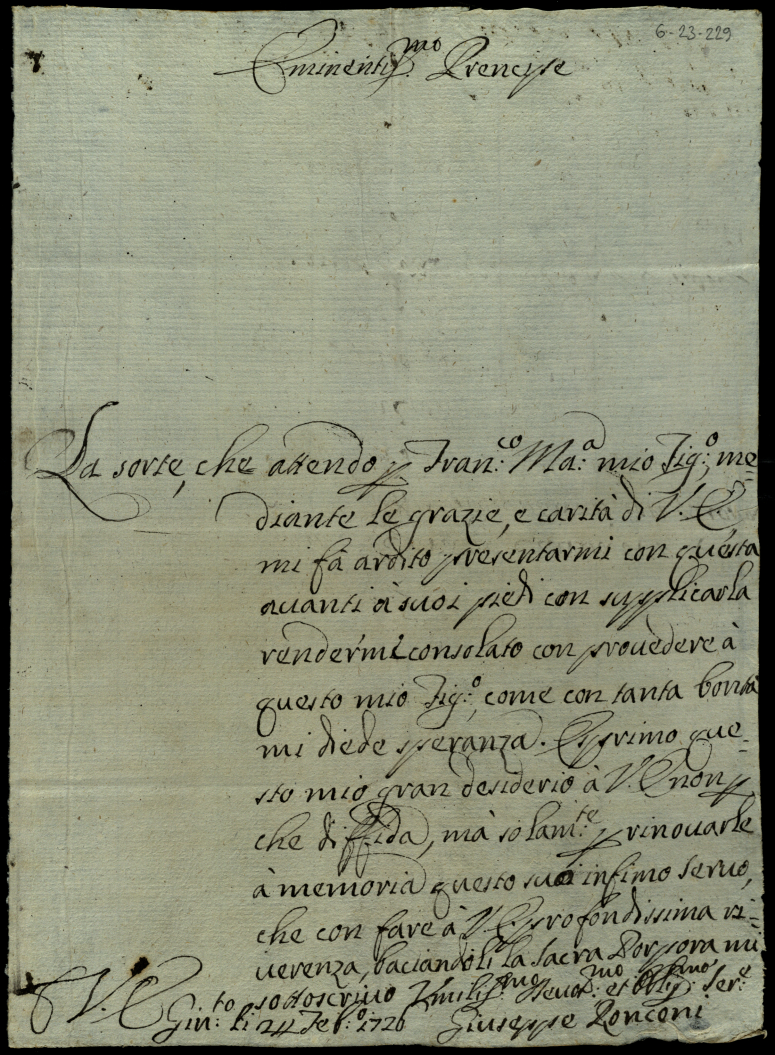 6-23-229
Eminentiss.mo Prencipe
La sorte, che attendo p Fran:co Ma:a mio Fig:o, me-
diante le grazie, e carità di V. E,
mi fà ardito presentarmi con questa
avanti à suoi piedi con supplicarla
rendermi consolato con provèdere à
questo mio Fig:o, come con tanta bontà
mi diede speranza. Esprimo que-
sto mio gran desiderio à V. E non p
che diffida, mà solam:te p rinovarle
à memoria questo suo infimo servo,
che con fare à V. E. profondissima ri-
verenza, baciandoli la Sacra Porpora mi
sottoscrivo Umiliss:mo Devot:mo et Obl:mo Ser:e
V. E
li 24 Feb:o 1720 Giuseppe Ronconi